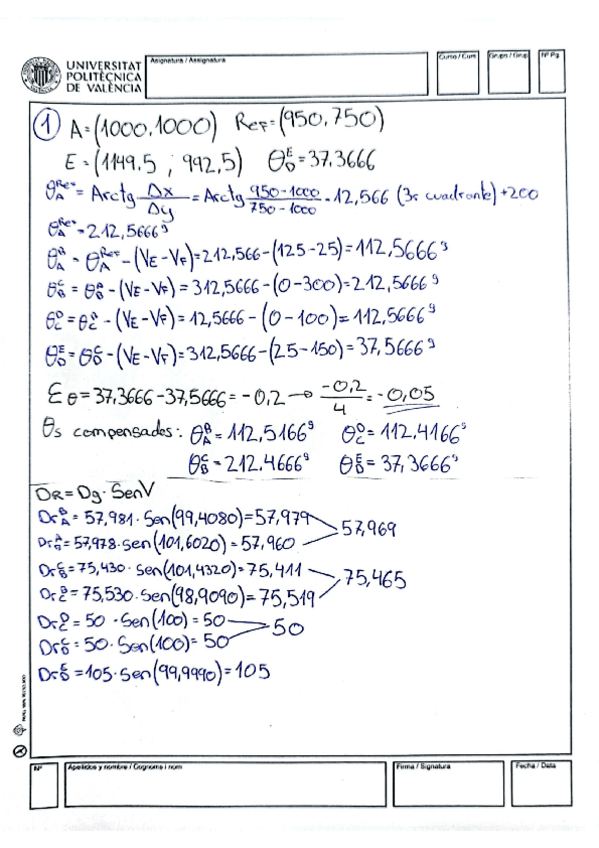 UNIVERSITAT
POLITÈCNICA
DE VALÈNCIA
Asignatura / Assignatura
Curso / Curs
Grupo / Grup
Nº Pg.
1 A=(1000,1000) Ref=(950,750)
E=(1149.5 ; 992,5) θ_D^E=37,3666
θ_A^Ref = Arctg Δx/Δy = Arctg 950-1000/750-1000 = 12,566 (3r cuadrante) +200
θ_A^Ref = 212,5666^g
θ_A^B = θ_A^Ref - (VE-VF)=212,566-(125-25)=112,5666^g
θ_B^C = θ_B^A - (VE-VF)=312,5666-(0-300)=212,5666^g
θ_C^D = θ_C^B - (VE-VF)=12,5666-(0-100)=112,5666^g
θ_D^E = θ_D^C - (VE-VF)=312,5666-(25-150)=37,5666^g
Eθ=37,3666-37,5666=-0,2 → -0,2/4 = -0,05
θs compensados: θ_A^B=112,5166^g θ_C^D=112.4166^g
θ_B^C=212.4666^g θ_D^E=37,3666^g
DR=Dg·SenV
Dr_A^B=57,981·Sen(99,4080)=57,979
57,969
Dr_B^A=57,978·Sen(101,6020)=57,960
Dr_B^C=75,430·Sen(101,4320)=75,411
75,465
Dr_C^B=75,530·Sen(98,9090)=75,519
Dr_C^D=50·Sen(100)=50
50
Dr_D^C=50·Sen(100)=50
Dr_D^E=105·Sen(99,9990)=105
Nº
Apellidos y nombre / Cognoms i nom
Firma / Signatura
Fecha / Data